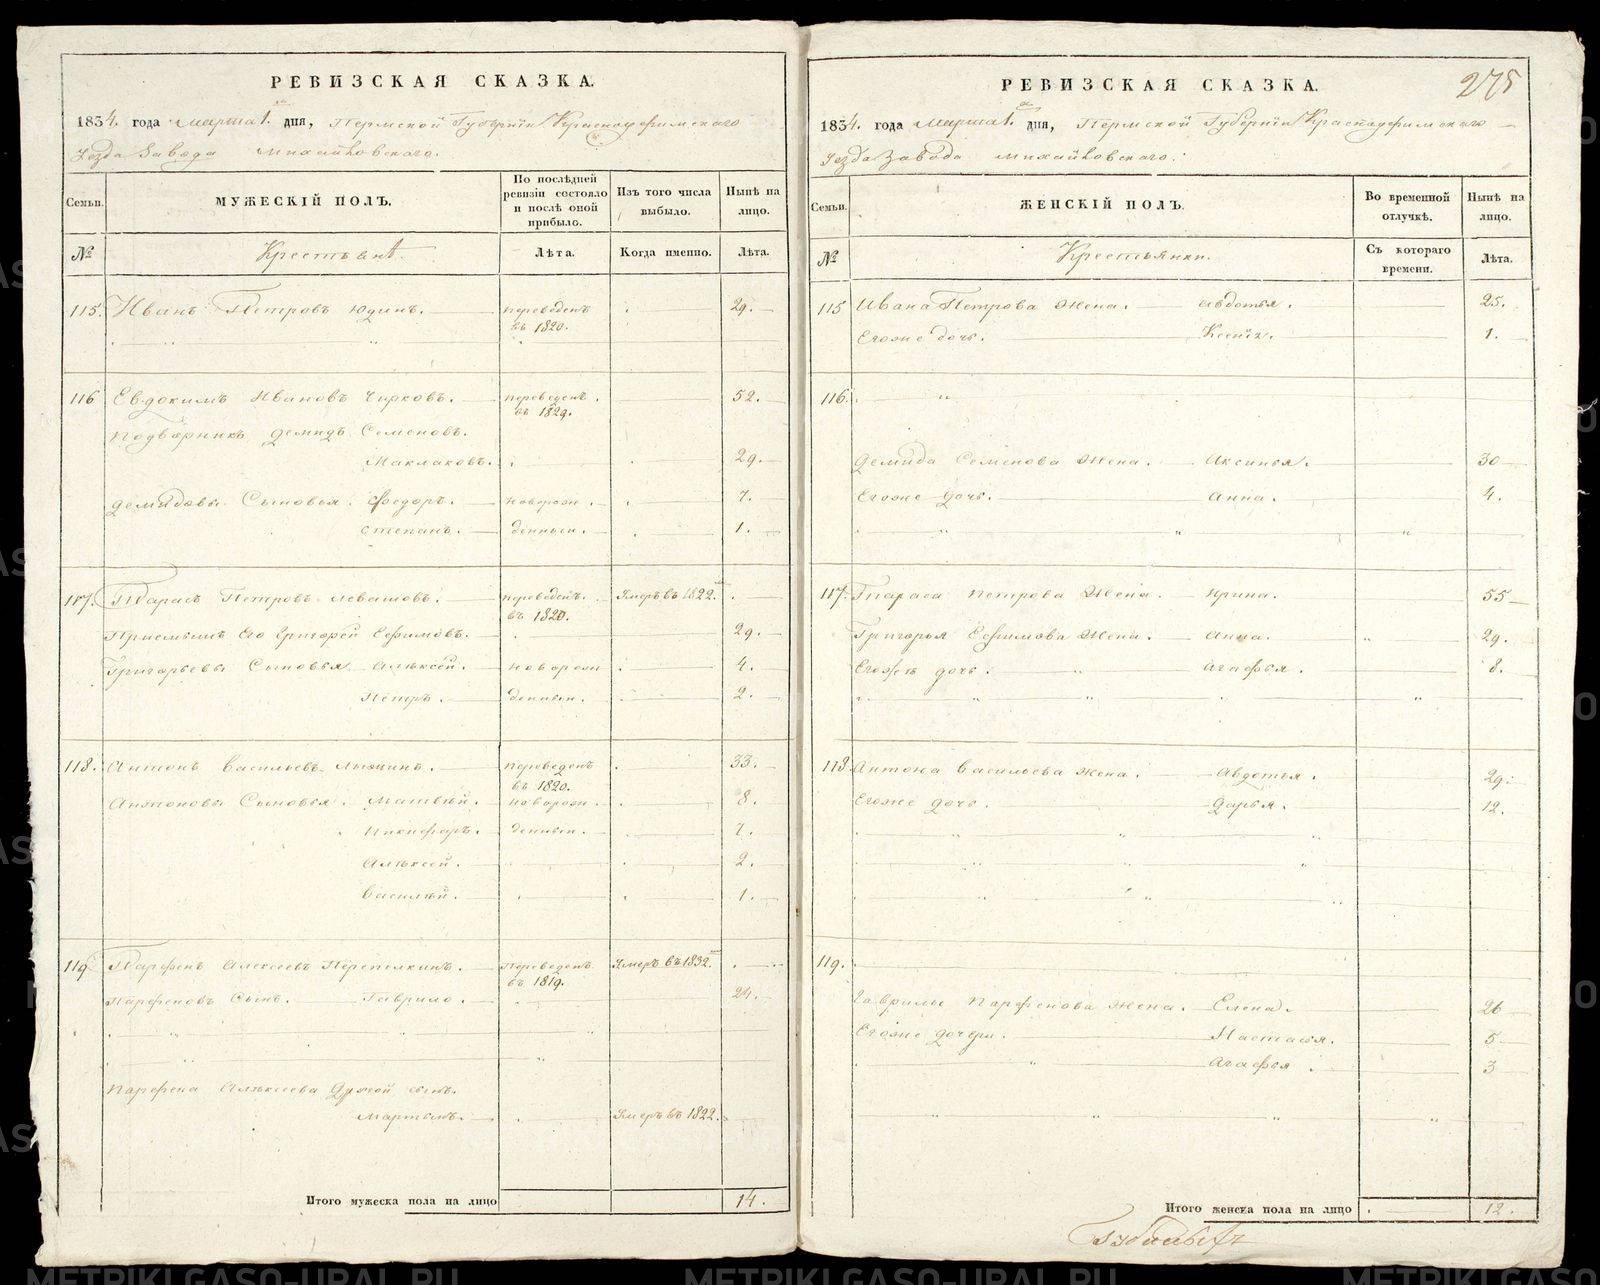 РЕВИЗСКАЯ СКАЗКА.
1834. года марта 1. дня, Пермской Губернїи Красноуфимскаго
Уезда Завода Михайловскаго.
Семьи. МУЖЕСКІЙ ПОЛЪ. По послѣдней ревизіи состояло и послѣ оной прибыло. Изъ того числа выбыло. Нынѣ на лицо.
№ Крестьянѣ. Лѣта. Когда именно. Лѣта.
115. Иванъ Петровъ Юдинъ. переведенъ въ 1820. 29.
116 Евдокимъ Ивановъ Чирковъ. переведенъ въ 1829. 52.
Подворникъ Демидъ Семеновъ.
Маклаковъ. 29.
Демидовы Сыновья. Федоръ. новорож 7.
Степанъ. денныи. 1.
117. Тарасъ Петровъ Левашовъ. переведенъ въ 1820. Умеръ въ 1822.
Приемышъ Его Григорей Ефимовъ. 29.
Григорьевы Сыновья Алексей. новорож 4.
Петръ. денныи. 2.
118. Антонъ Васильевъ переведенъ въ 1820. 33.
Антоновы Сыновья. Матвей. новорож. 8.
Никифоръ. денныи. 7.
Алексей. 2.
Василей. 1.
119. Парфенъ Алексеевъ Перепелкинъ. Переведенъ въ 1819. Умеръ въ 1832.
Парфеновъ Сынъ. Гаврило. 24.
Парфена Алексеева Другой сынъ.
Мартынъ. Умеръ въ 1822.
Итого мужеска пола на лицо 14.
РЕВИЗСКАЯ СКАЗКА. 275
1834. года марта 1. дня, Пермской Губернїи Красноуфимскаго
Уезда Завода Михайловскаго.
Семьи. ЖЕНСКІЙ ПОЛЪ. Во временной отлучкѣ. Нынѣ на лицо.
№ Крестьянки. Съ котораго времени. Лѣта.
115 Ивана Петрова Жена. Авдотья. 25.
Егоже дочь. Ксенїя. 1.
116.
Демида Семенова Жена. Аксинья. 30
Егоже дочь. Анна. 4.
117. Тараса Петрова Жена. Ирина. 55
Григорья Ефимова Жена. Анна. 29.
Егожъ дочь. Агафья. 8.
118. Антона Васильева жена. Авдотья. 29.
Егоже дочь. Дарья. 12.
119.
Гаврилы Парфенова Жена. Елена. 26
Егоже дочери. Настасья. 5
Агафья. 3
Итого женска пола на лицо 12.